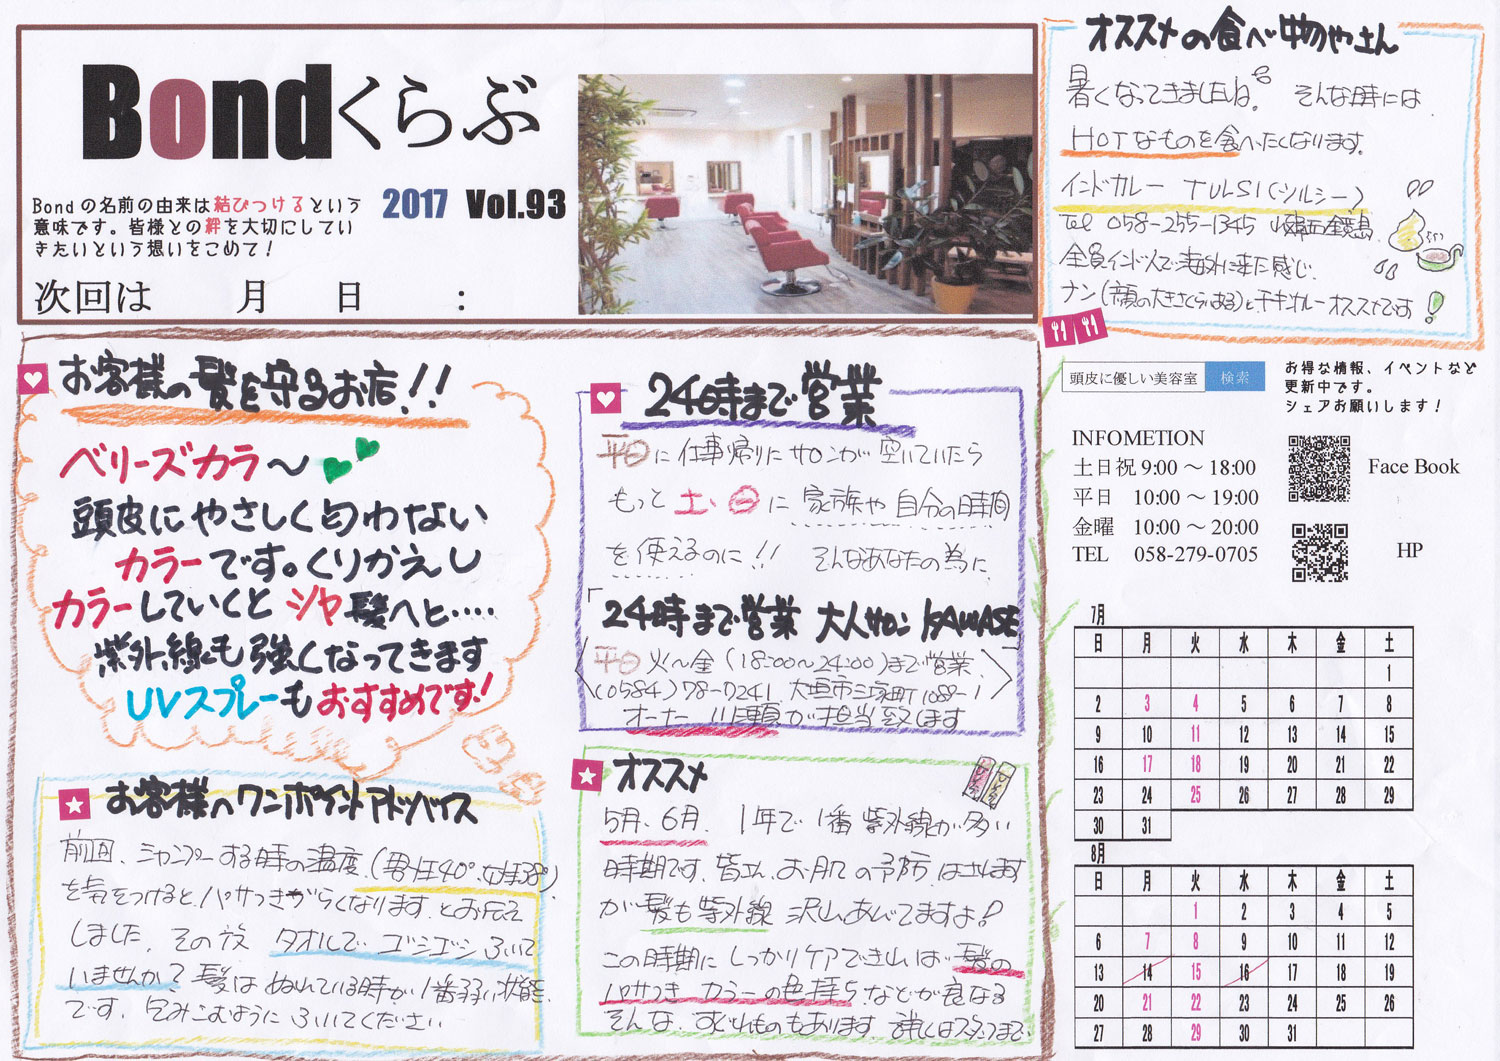 Bondくらぶ
Bondの名前の由来は結びつけるという
意味です。皆様との絆を大切にしてい
きたいという想いをこめて！
2017 Vol.93
次回は 月 日 :
オススメの食べ物やさん
暑くなってきましたね。そんな時には
HOTなものを食べたくなります。
インドカレー TULSI(ツルシー)
Tel 058-255-1345
全員インド人で海外に来た感じ。
ナン(顔の大きさくらいある)とチキンカレーオススメです！
お客様の髪を守るお店！！
ベリーズカラ〜
頭皮にやさしく匂わない
カラーです。くりかえし
カラーしていくと ツヤ髪へと・・・・・
紫外線も強くなってきます
UVスプレーもおすすめです！
24時まで営業
平日に仕事帰りにサロンが空いていたら
もっと土、日に家族や自分の時間
を使えるのに！！ そんなあなたの為に
「24時まで営業 大人サロン KAWASE
平日 火〜金 (18:00〜24:00)まで営業
(0584)78-7241 大垣市三塚町1089-1
オーナー川瀬が担当致します
お客様へワンポイントアドバイス
前回、シャンプーする時の温度(男性40°女性38°)
を気をつけると、パサつきづらくなります。とお伝え
しました。その次 タオルでゴシゴシふいて
いませんか？髪はぬれている時が1番弱い状態
です。包みこむようにふいてください
オススメ
5月、6月、1年で1番紫外線が多い
時期です。皆さん、お肌の予防はします
が髪も紫外線沢山あびてますよ！
この時期にしっかりケアできれば髪の
パサつきカラーの色持ちなどが良くなる
そんな、すぐれものもあります。詳しくはスタッフまで
頭皮に優しい美容室 検索
お得な情報、イベントなど
更新中です。
シェアお願いします！
INFOMETION
土日祝 9:00 〜 18:00
平日 10:00 〜 19:00
金曜 10:00 〜 20:00
TEL 058-279-0705
Face Book
HP
7月
日 月 火 水 木 金 土
1
2 3 4 5 6 7 8
9 10 11 12 13 14 15
16 17 18 19 20 21 22
23 24 25 26 27 28 29
30 31
8月
日 月 火 水 木 金 土
1 2 3 4 5
6 7 8 9 10 11 12
13 14 15 16 17 18 19
20 21 22 23 24 25 26
27 28 29 30 31